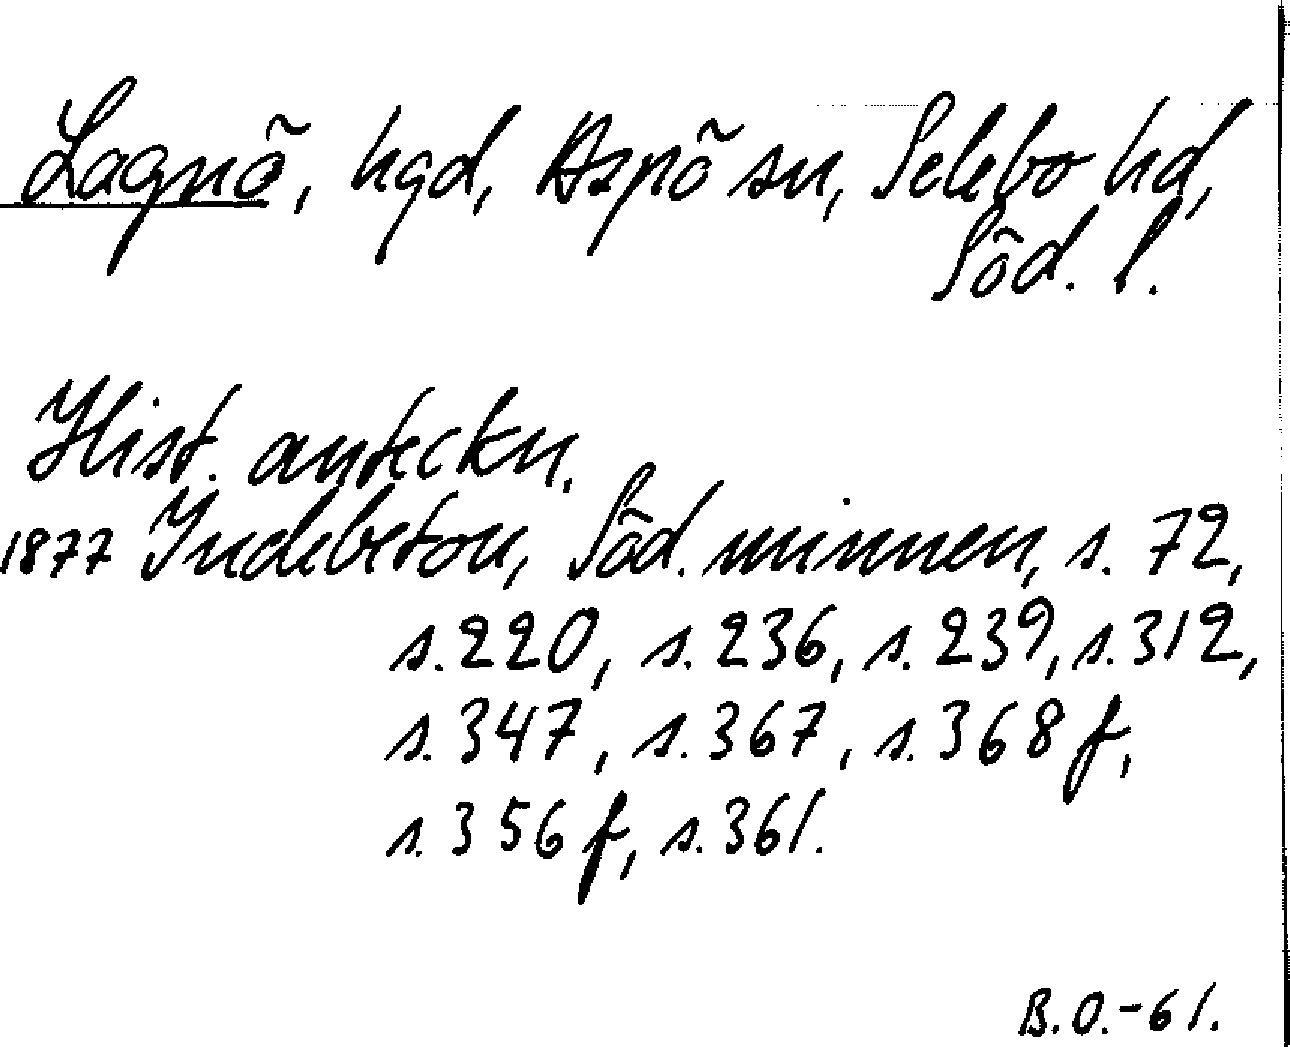 Lagnö, hgd, Aspö sn, Selebo hd,
Söd. l.
Hist. anteckn.
1877 Indebetou, Söd. minnen, s. 72,
s. 220, s. 236, s. 239, s. 312,
s. 347, s. 367, s. 368 f,
s. 356 f, s. 361.
B.O.-61.